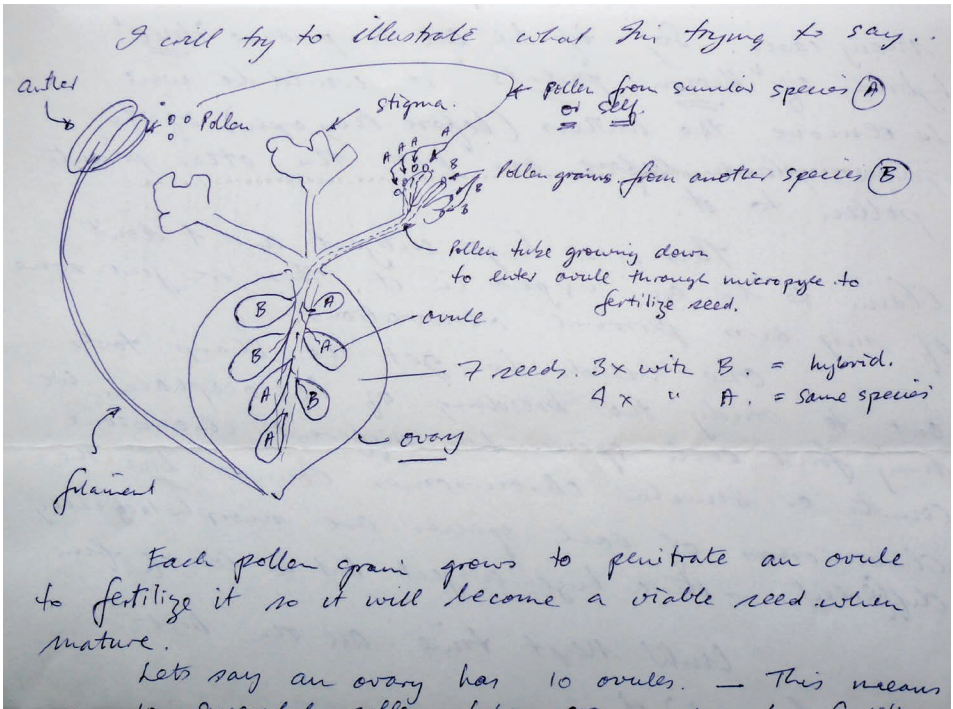 I will try to illustrate what I'm trying to say..
anther
Pollen
stigma.
pollen from similar species A
or self.
A A A A
B B B B
Pollen grains from another species B
Pollen tube growing down
to enter ovule through micropyle to
fertilize seed.
B A
ovule
B A
7 seeds. 3x with B. = hybrid.
4 x " A. = same species
A B
A
ovary
filament
Each pollen grain grows to penitrate an ovule
to fertilize it so it will become a viable seed when
mature.
Lets say an ovary has 10 ovules. — This means